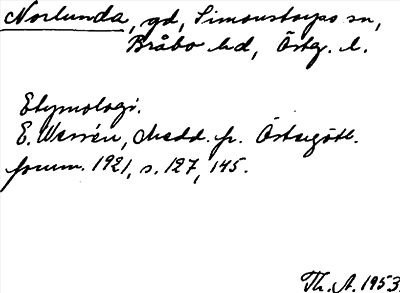 Norlunda, gd, Simonstorps sn,
Bråbo hd, Östg. l.
Etymologi.
E. Wessén, Medd. fr. Östergötl.
fornm. 1921, s. 127, 145.
Th. A. 1953.